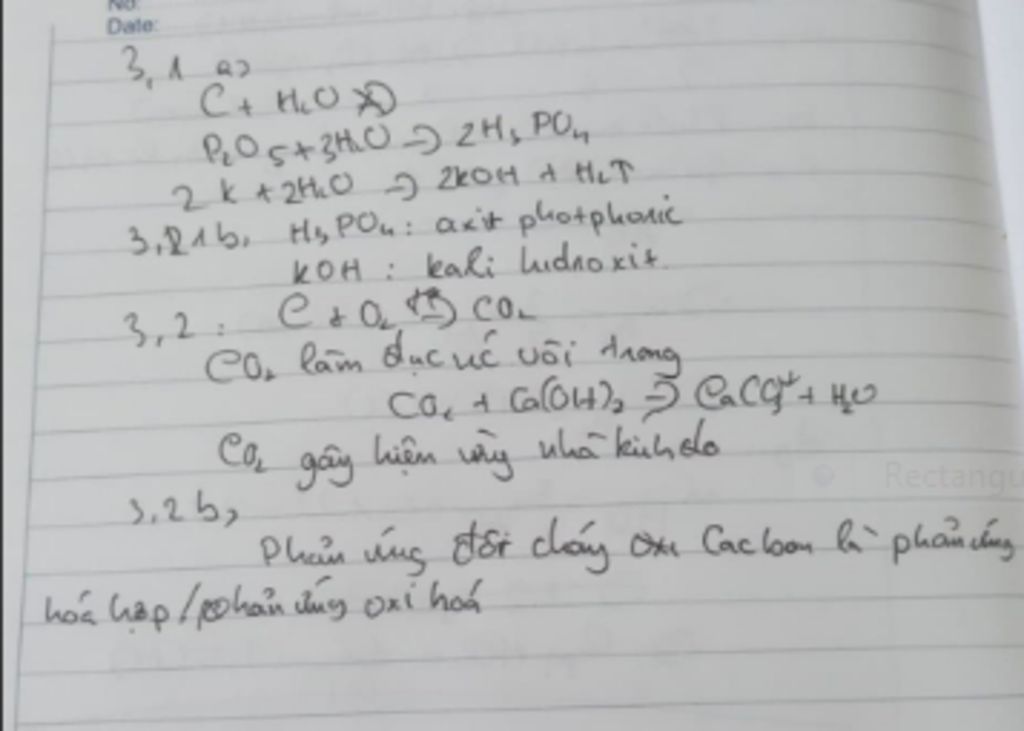 No:
Date:
3,1 a>
C + H2O
P2O5 + 3H2O => 2H3PO4
2K + 2H2O => 2KOH + H2↑
3,1 b, H3PO4: axit photphoric
KOH : kali hidroxit
3,2: C + O2 => CO2
CO2 làm đục vôi trong
CO2 + Ca(OH)2 => CaCO3↓ + H2O
CO2 gây hiện ứng nhà kính do
3,2 b,
Phản ứng đốt cháy Cacbon là phản ứng
hoá hợp / phản ứng oxi hoá
Rectangu